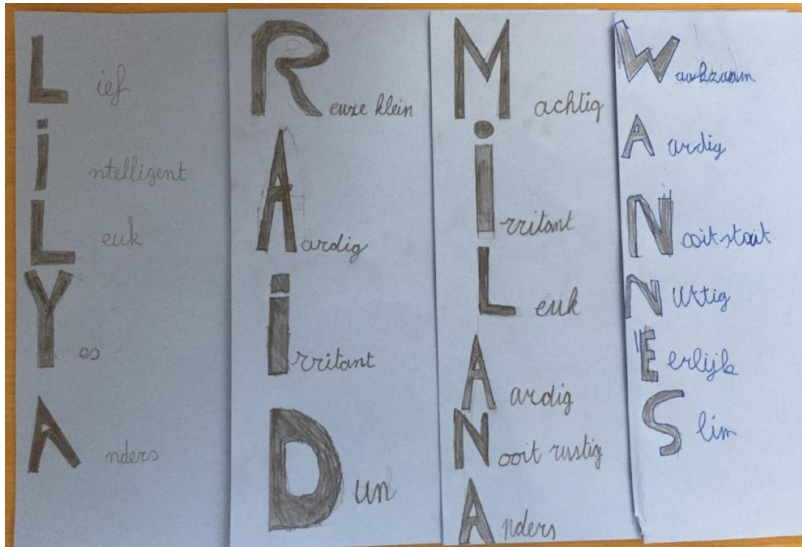 Lief
intelligent
Leuk
Yes
Anders
Reuze klein
Aardig
irritant
Dun
Machtig
irritant
Leuk
Aardig
Nooit rustig
Anders
Waakzaam
Aardig
Nooit stout
Nuttig
Eerlijk
Slim